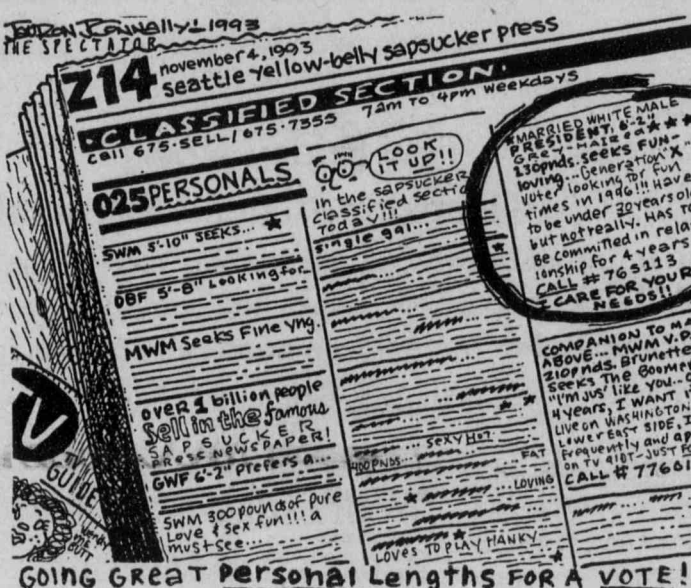 JATRON CONNally! 1993
THE SPECTATOR
Z14 november 4, 1993
seattle yellow-belly sapsucker press
• CLASSIFIED SECTION •
call 675-SELL / 675-7355 7am TO 4pm weekdays
025 PERSONALS
SWM 5'-10" SEEKS...
DBF 5'-8" Looking for...
MWM Seeks Fine yng.
OVER 1 billion people
Sell in the famous
SAPSUCKER
PRESS NEWSPAPER!
GWF 6'-2" Prefers a...
SWM 300 pounds of Pure
Love & Sex fun!!! a
must see...
LOOK
IT UP!!
In the sapsucker
classified sectio
Today!!!
single gal...
... SEXY HOT
400 PNDS... FAT
LOVING
LOVES TO PLAY HANKY
MARRIED WHITE MALE
PRESIDENT, 6'-2"
GREY-HAIRED
230pnds. seeks FUN-
loving... Generation X
Voter looking for fun
times in 1996!!! Have
to be under 30 years ol
but not really. HAS TO
BE committed in rela
ionship for 4 years
CALL # 765113
I CARE FOR YOUR
NEEDS!!
COMPANION TO MA
ABOVE... MWM V.P.
210pnds. Brunette
Seeks The Boomer
"I'm Jus' like you...
4 years, I WANT
Live on WASHINGTON
Lower EAST SIDE, I
Frequently and ap
on TV 9101-JUST FO
CALL # 77681
TV
TV
GUIDE
BUTT
GOING GREAT personal Lengths FOR A VOTE!